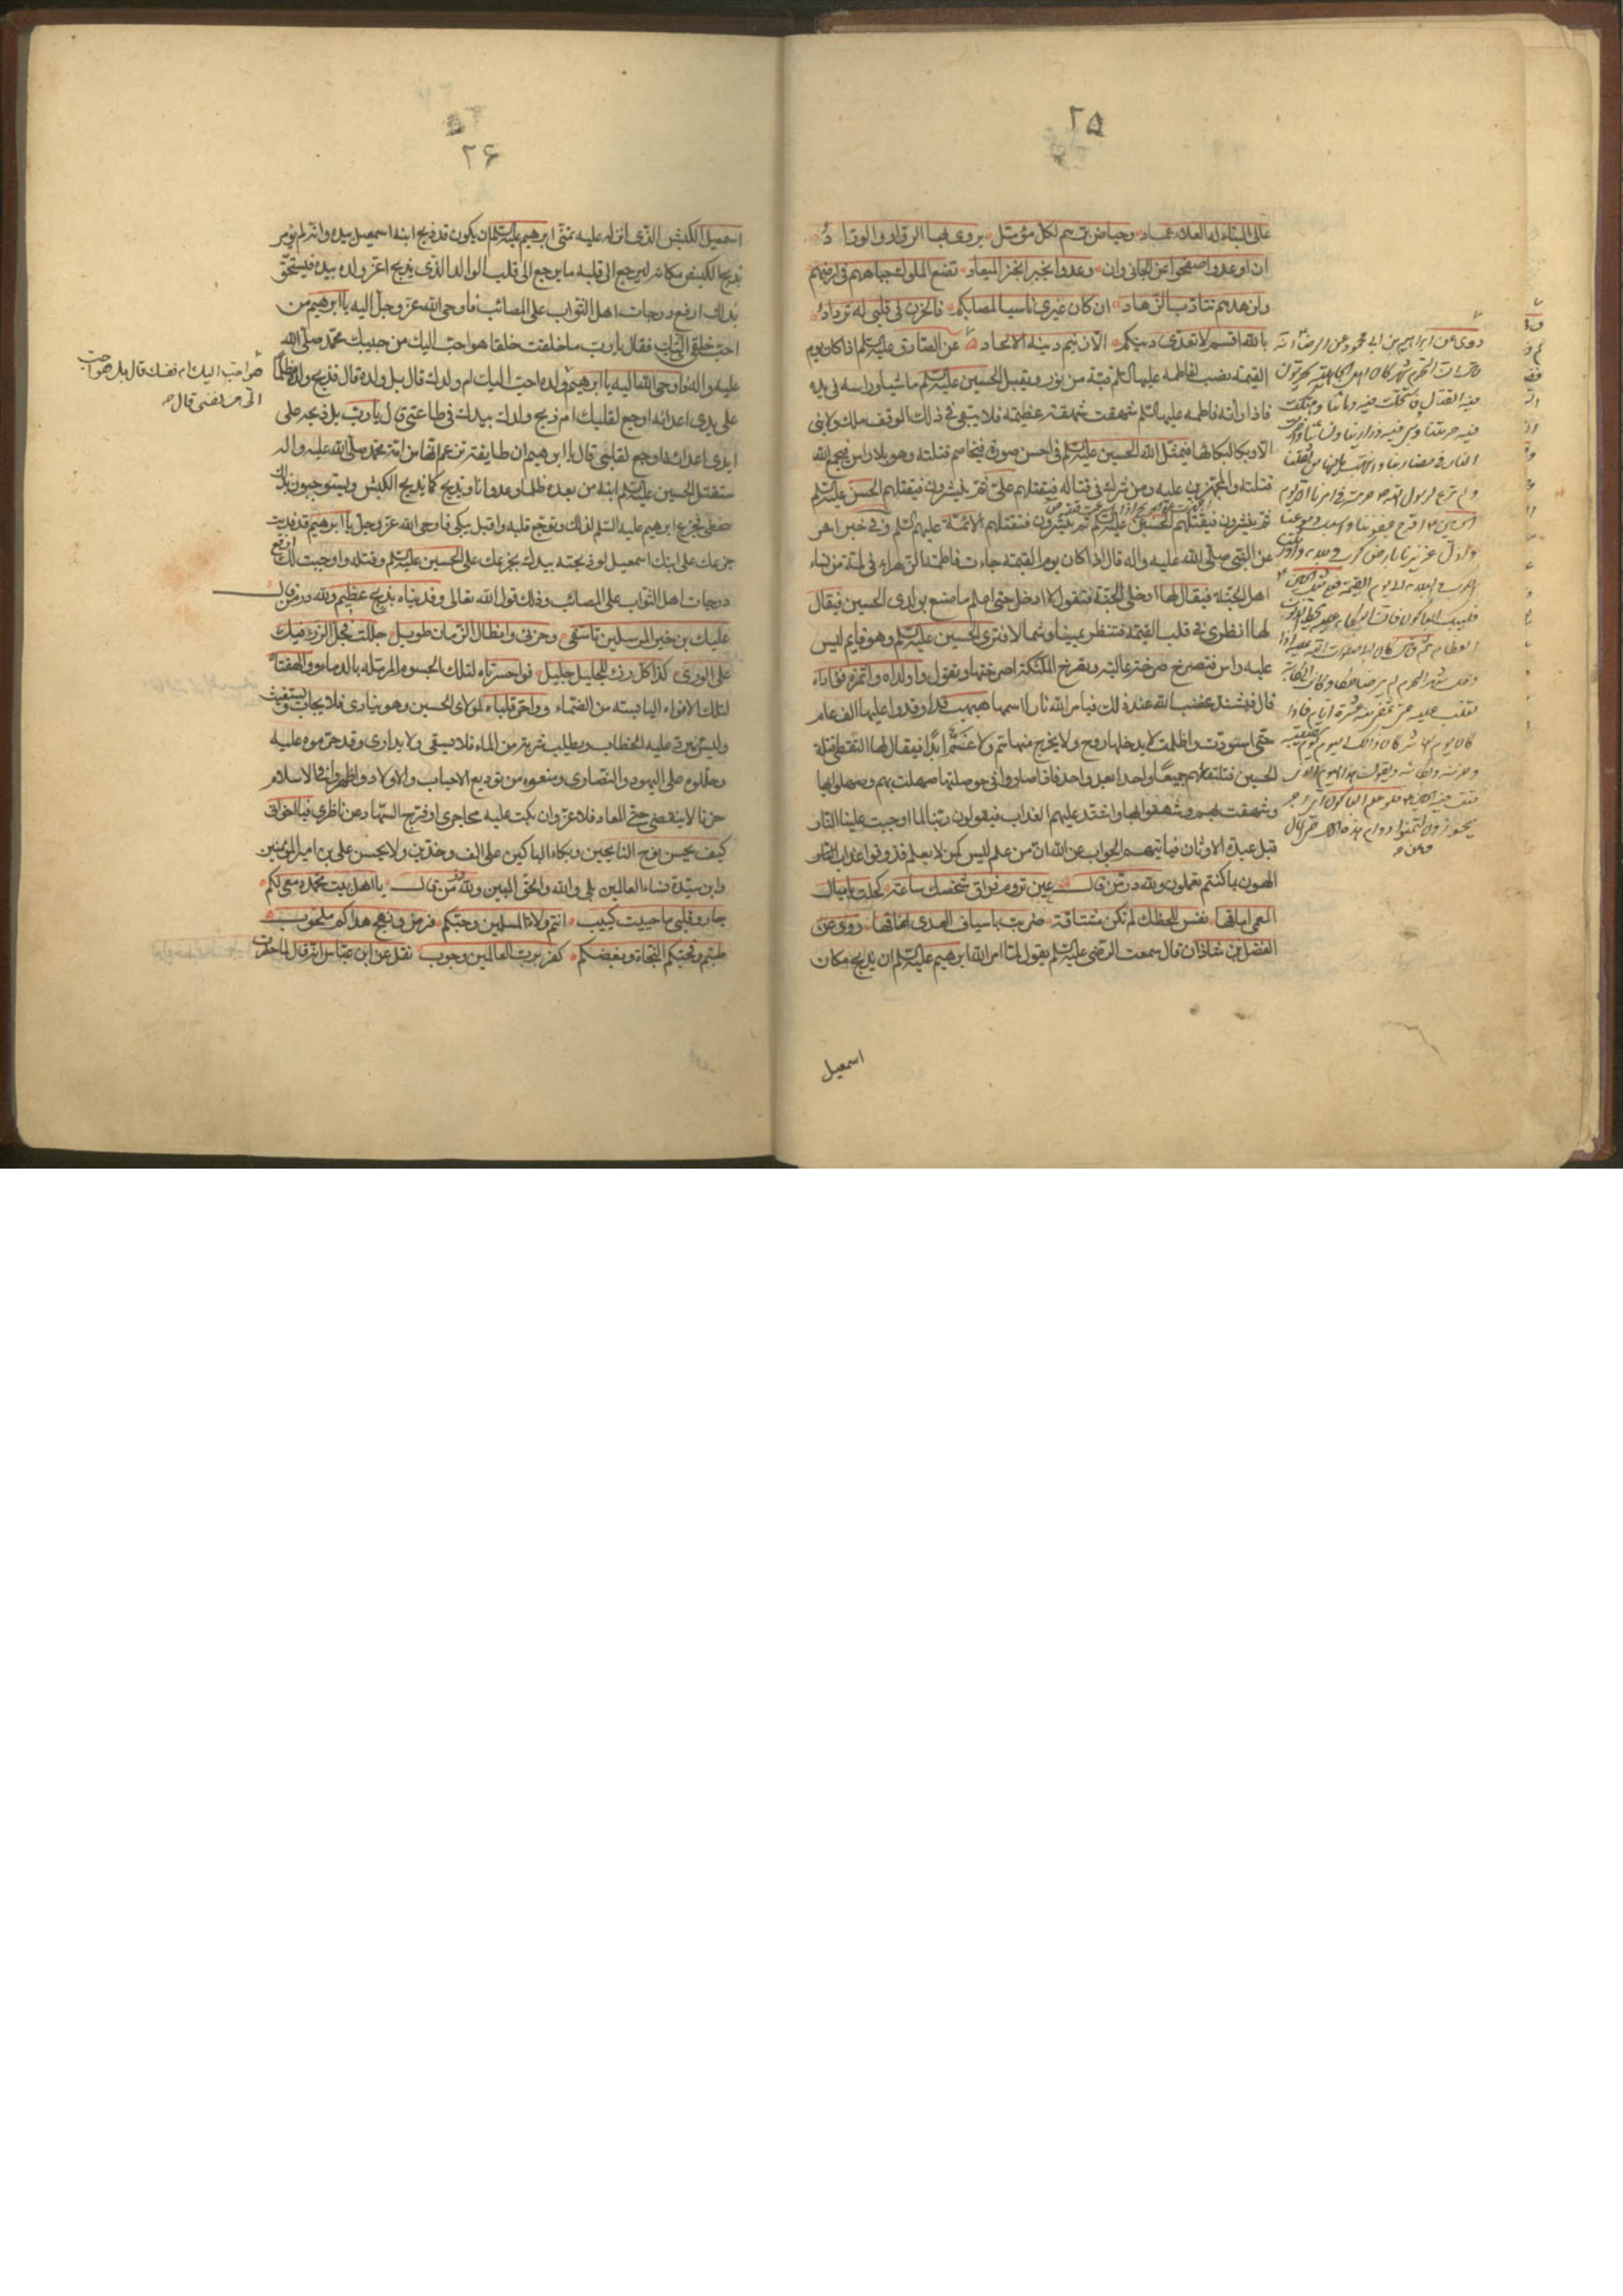 ٢٥
عالى البناء له العلاء عماد وحياض برهم لكل مؤمل يروى بها الوراد والوفاد
ان اوعدوا صفحوا عن الجانى وان وعدوا بخير انجز الميعاد تضع الملوك جباههم فى ارضهم
ولزهدهم تتأدب الزهاد ان كان غيرى ناسيا لمصابكم فالحزن فى قلبى له ترداد
بالله اقسم لا تعدى دينكم الا زنيم دينه الالحاد عن الصادق عليه السلم اذا كان يوم
القيمة نصب لفاطمه عليها السلم قبة من نور ويقبل الحسين عليه السلم ماشيا وراسه فى يده
فاذا راته فاطمه عليها السلم شهقت شهقة عظيمة فلا يبقى فى ذلك الموقف ملك ولا نبى
الا وبكا لبكائها فيمثل الله الحسين عليه السلم فى احسن صورة فيخاصم قتلته وهو بلا راس فيجمع الله
قتلته والمجهزين عليه ومن شرك فى قتاله فيقتلهم على ثم ينشرون فيقتلهم الحسن عليه السلم
ثم ينشرون فيقتلهم الحسين عليه السلم ثم ينشرون فتقتلهم الائمة عليهم السلم وفى خبر اخر
عن النبى صلى الله عليه واله قال اذا كان يوم القيمة جاءت فاطمة الزهراء فى لمة من نساء
اهل الجنة فيقال لها ادخلى الجنة فتقول لا ادخل حتى اعلم ما صنع بولدى الحسين فيقال
لها انظرى فى قلب القيمة فتنظر يمينا وشمالا فترى الحسين عليه السلم وهو قايم ليس
عليه راس فتصرخ صرخة عالية وتصرخ الملئكة لصرختها وتقول واولداه واثمرة فؤاداه
قال فيشتد غضب الله عند ذلك فيامر الله نارا اسمها هبهب قد اوقد عليها الف عام
حتى اسودت واظلمت لا يدخلها روح ولا يخرج منها غم ابدا فيقال لها التقطى قتلة
الحسين فتلتقطهم جميعا واحدا بعد واحد فاذا صاروا فى حوصلتها صهلت بهم وصهلوا بها
وشهقت بهم وشهقوا بها واشتد عليهم العذاب فيقولون ربنا لما اوجبت علينا النار
قبل عبدة الاوثان فياتيهم الجواب عن الله ان من علم ليس كمن لا يعلم فذوقوا عذاب
الهون بما كنتم تعملون ولله در من قال عين تروم فراق شخصك ساعة كحلت باميال
العمى اماقها نفس للحظك لم تكن مشتاقة ضربت باسياف العدى اعناقها روى عن
الفضل بن شاذان قال سمعت الرضى عليه السلم يقول لما امر الله ابرهيم عليه السلم ان يذبح مكان
اسمعيل
روى عن ابراهيم بن ابى محمود عن الرضا انه
قال ان المحرم شهر كان اهل الجاهلية يحرمون
فيه القتال فاستحلت فيه دماؤنا وهتكت
فيه حرمتنا وسبى فيه ذرارينا ونساؤنا واضرمت
النار فى مضاربنا وانتهب ما فيها من ثقلنا
ولم ترع لرسول الله حرمة فى امرنا ان يوم
الحسين اقرح جفوننا واسبل دموعنا
واذل عزيزنا بارض كرب وبلاء واورثتنا
الكرب والبلاء الى يوم القيمة فعلى مثل الحسين
فليبك الباكون فان البكاء عليه يحط الذنوب
العظام ثم قال كان ابى صلوات الله عليه اذا
دخل شهر المحرم لم ير ضاحكا وكانت الكابة
تغلب عليه حتى تمضى منه عشرة ايام فاذا
كان يوم العاشر كان ذلك اليوم يوم مصيبته
وحزنه وبكائه ويقول هذا اليوم الذى
قتل فيه الحسين
٢۶
اسمعيل الكبش الذى انزله عليه تمنى ابرهيم عليه السلم ان يكون قد ذبح ابنه اسمعيل بيده وانه لم يؤمر
بذبح الكبش مكانه ليرجع الى قلبه ما يرجع الى قلب الوالد الذى يذبح اعز ولده بيده فيستحق
بذلك ارفع درجات اهل الثواب على المصائب فاوحى الله عز وجل اليه يا ابرهيم من
احب خلقى اليك فقال يا رب ما خلقت خلقا هو احب اليك من حبيبك محمد صلى الله
عليه واله فاوحى الله اليه يا ابرهيم فولده احب اليك ام ولدك قال بل ولده قال فذبح ولده ظلما
على يدى اعدائه اوجع لقلبك ام ذبح ولدك بيدك فى طاعتى قال يا رب بل ذبحه على
ايدى اعدائه اوجع لقلبى قال يا ابرهيم ان طايفة تزعم انها من امة محمد صلى الله عليه واله
ستقتل الحسين عليه السلم ابنه من بعده ظلما وعدوانا ويذبح كما يذبح الكبش ويستوجبون بذلك
سخطى فجزع ابرهيم عليه السلم لذلك وتوجع قلبه واقبل يبكى فاوحى الله عز وجل يا ابرهيم قد فديت
جزعك على ابنك اسمعيل لو ذبحته بيدك بجزعك على الحسين عليه السلم وقتله واوجبت لك ارفع
درجات اهل الثواب على المصائب وذلك قول الله تعالى وفديناه بذبح عظيم ولله در من قال
عليك بن خير المرسلين تاسفى وحزنى وان طال الزمان طويل جللت فجل الرزء فيك
على الورى كذا كل رزء للجليل جليل فواحسرتاه لتلك الجسوم المرملة بالدماء ووالهفتاه
لتلك الافواه اليابسة من الضماء وواحر قلباه لمولاى الحسين وهو ينادى فلا يجاب ويستغيث
وليس يرد عليه الخطاب ويطلب شربة من الماء فلا يسقى ولا يدارى وقد حرموه عليه
وحللوه على اليهود والنصارى ومنعوه من توديع الاحباب والاولاد واظهروا فى الاسلام
حزنا لا ينقضى حتى المعاد فلا عزوان بكت عليه محاجرى او قرح السهاد عن ناظرى فيا اخوانى
كيف يحسن نوح النايحين وبكاء الباكين على الف وخدين ولا يحسن على بن امير المؤمنين
وابن سيدة نساء العالمين بلى والله والحق المبين ولله در من قال يا اهل بيت محمد دمعى لكم
جار وقلبى ما حييت كئيب انتم ولاة المسلمين وحبكم فرض ونهج هداكم ملحوب
طبتم فحبكم النجاة وبغضكم كفر برب العالمين وجوب نقل عن ابن عباس انه قال لما حضرت
هو احب اليك ام نفسك قال بل هو احب
الى من نفسى قال